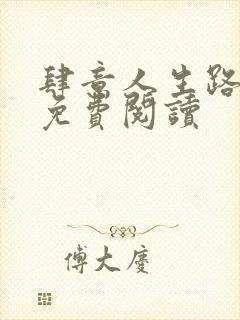 肆意人生路
免費閱讀
傅大慶